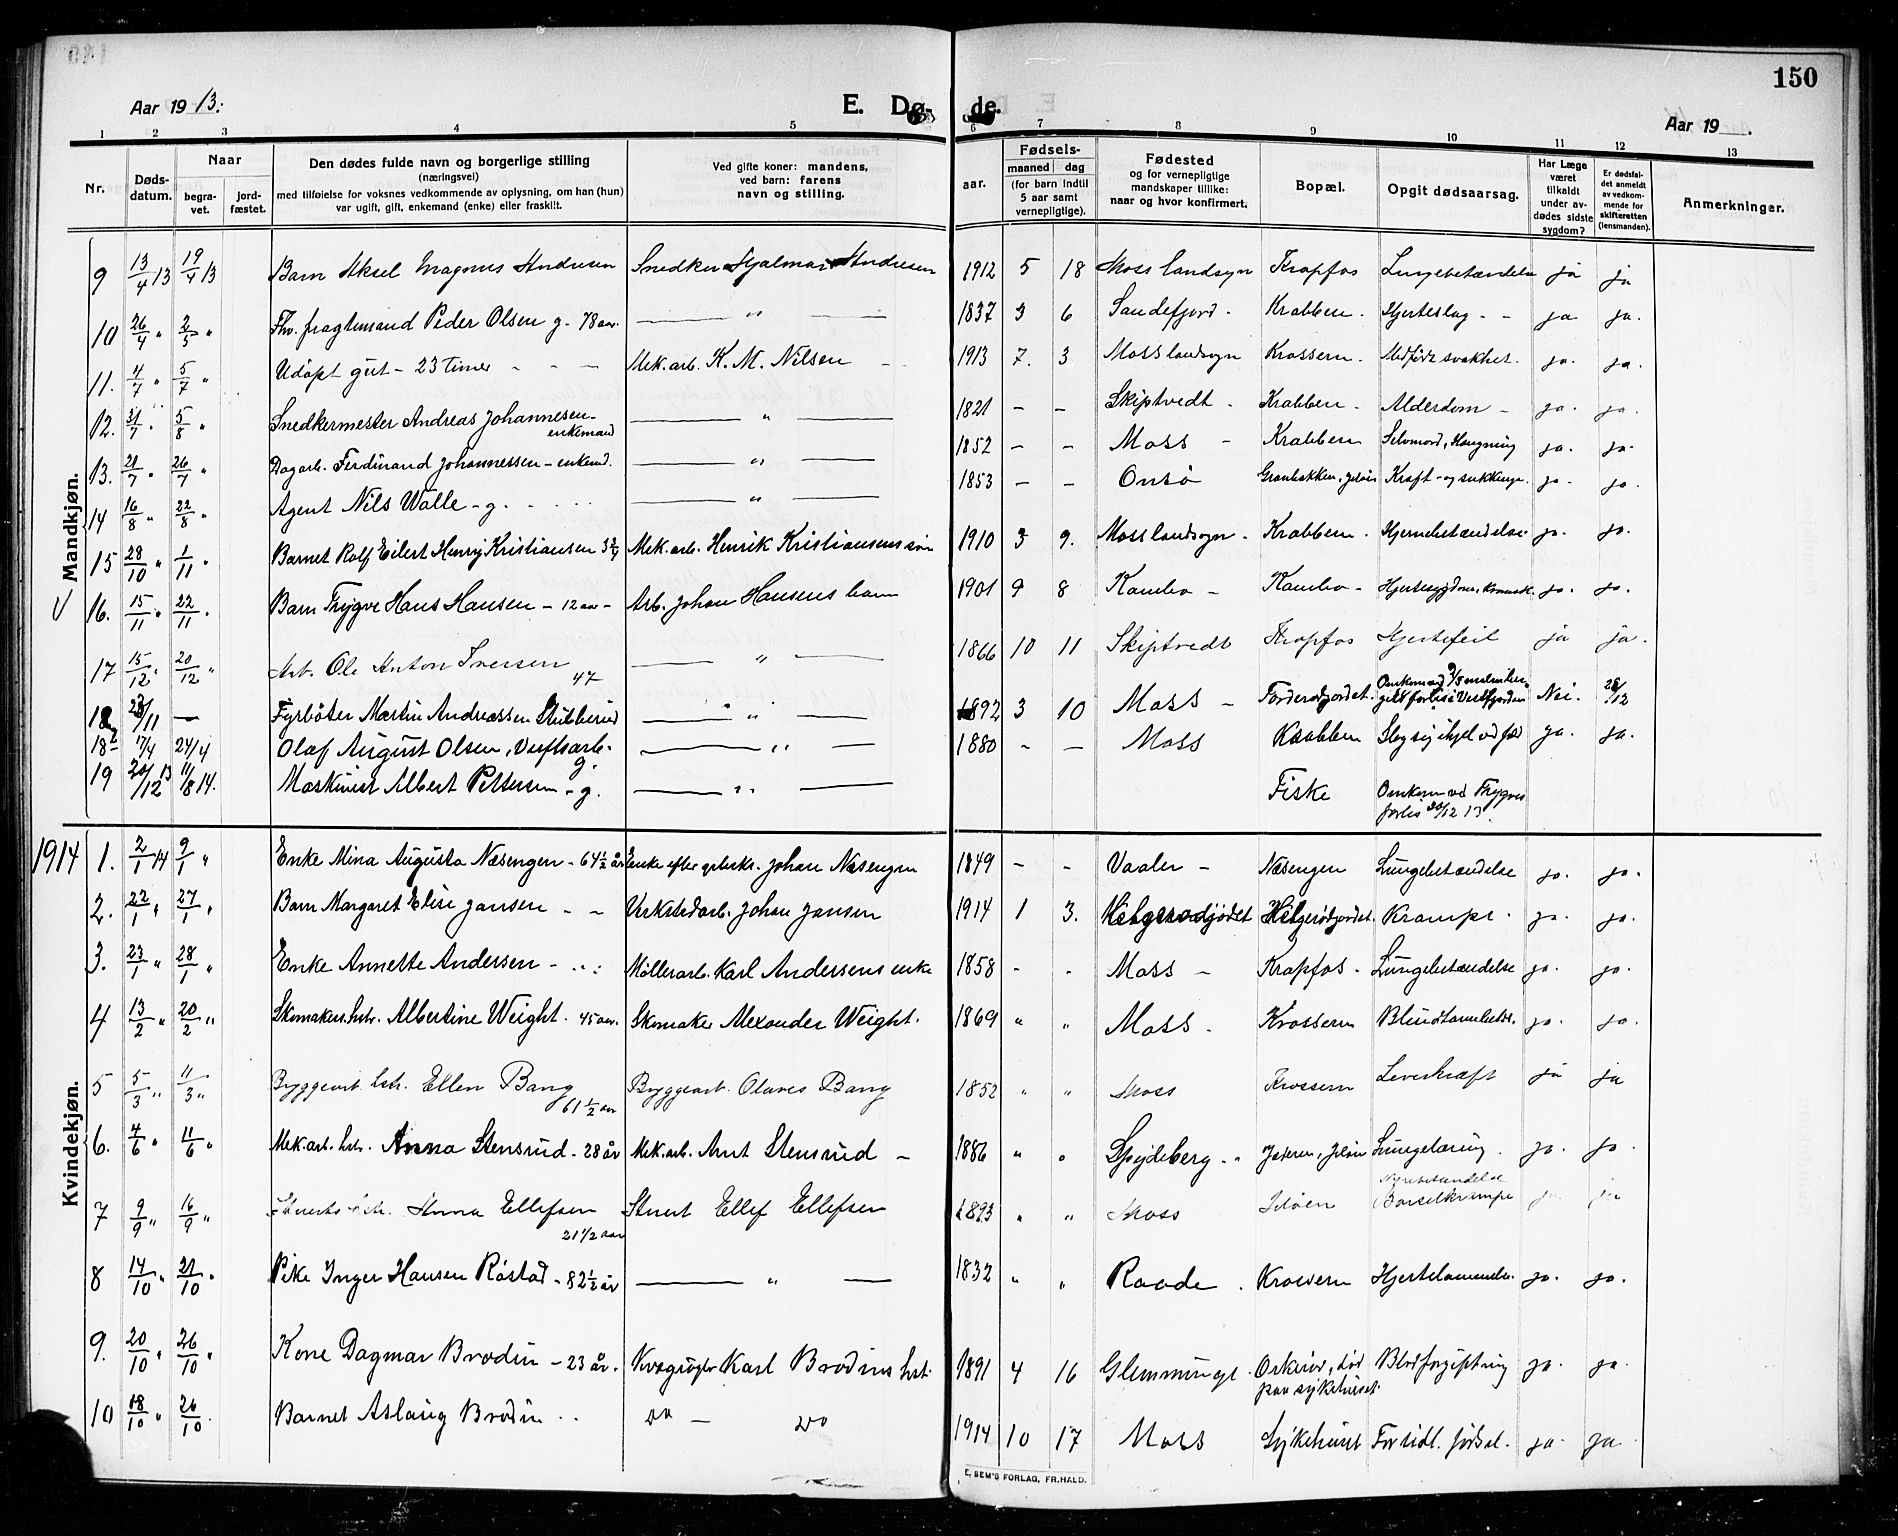 150
Aar 1913.
E. Dø-
de.
Aar 19 .
1 2 3 4 5 6 7 8 9 10 11 12 13
Nr.
Døds-
datum.
Naar
begra-
vet.
jord-
fæstet.
Den dødes fulde navn og borgerlige stilling
(næringsvei)
med tilføielse for voksnes vedkommende av oplysning, om han (hun)
var ugift, gift, enkemand (enke) eller fraskilt.
Ved gifte koner: mandens,
ved barn: farens
navn og stilling.
Fødsels-
aar.
maaned dag
(for barn indtil
5 aar samt
vernepligtige).
Fødested
og for vernepligtige
mandskaper tillike:
naar og hvor konfirmert.
Bopæl.
Opgit dødsaarsag.
Har Læge
været
tilkaldt
under av-
dødes sidste
sygdom?
Er dødsfal-
det anmeldt
av vedkom-
mende for
skifteretten
(lensmanden).
Anmerkninger.
Mandkjøn.
9 13/4 13 19/4 13 Barn Aksel Magnus Andresen Snedker Hjalmar Andresen 1912 5 18 Moss landsogn Krapfos Lungebetændelse ja ja
10 26/4 " 2/5 " Fhv. fragtemand Peder Olsen g. 78 aar. — " — 1837 3 6 Sandefjord - Krabben - Hjerteslag - - ja ja.
11. 4/7 " 5/7 " Udøpt gut - 23 timer - - - Mek. arb. K. M. Nilsen - 1913 7. 3 Moss landsogn Krossern. Medfødt svakhet. ja. ja.
12. 31/7 " 5/8 " Snedkermester Andreas Johannesen -
enkemand — " — 1821 - - Skiptvedt - Krabben - Alderdom - ja. ja.
13. 21/7 " 26/7 " Dagarb. Ferdinand Johannessen - enkemd. — " — 1852 - - Moss - Krabben Selvmord, Hængning ja. ja.
14 16/8 " 22/8 " Agent Nils Walle - g. — " — 1853 - - Onsø Kræft - og ja - ja.
15 28/10 " 1/11 " Barnet Rolf Eilert Henry Kristiansen Mek. arb. Henrik Kristiansens søn 1910 3 9. Moss landsogn - Krabben - Hjernebetændelse ja. ja.
V 16. 15/11 " 22/11 " Barn Trygve Hans Hansen - 12 aar - Arb. Johan Hansens barn 1901 9 8 Kambo - Kambo - ja. ja.
17 15/12 " 20/12 " Arb. Ole Anton Iversen
47 — " — 1866 10 11 Skiptvedt Krapfos Hjertefeil ja ja.
18 23/11 — Fyrbøter Martin Andreassen Stibberud — " — 1892 3 10 Moss - Nei. 28/12
18 2 17/4 24/4 Olaf August Olsen, Verftsarb.
g. — " — 1880 - - Moss Krabben Slog sig ihjel ved fald ja. ja.
19 20/12 13 11/8 14. Maskinist Albert Pettersen - g. — " — Fiske Omkom ved Trygves
forlis 20/12 13.
1914
Kvindekjøn.
1. 2/1 14 9/1 " Enke Mina Augusta Næsengen - 64 1/2 år Enke efter Johan Næsengen 1849 - - Vaaler - Næsengen Lungebetændelse ja. ja.
2. 22/1 " 27/1 " Barn Margaret Elise Jansen - - Verkstedarb. Johan Jansen 1914 1 3. Helgerødjødet Helgerødjordet. Krampe. ja. ja.
3. 23/1 " 28/1 " Enke Annette Andersen - Møllerarb. Karl Andersens enke 1858 - - Moss - Krapfos - Lungebetændelse ja. ja.
4 13/2 " 20/2 " Skomakers hstr. Albertine Weight. 45 aar. Skomaker Alexander Weight. 1869 " " Moss - Krossern Blindtarmbetdl. ja. ja.
5 5/3 " 11/3 " Byggearb. hstr. Ellen Bang
61 1/2 aar Byggearb. Olaves Bang 1852 " " Moss Krossern Leverkræft ja ja
6. 4/6 " 11/6 " Mek. arb. hstr. Anna Stensrud - 28 år Mek. arb. Arnt Stensrud - 1886 " " Spydeberg - Jeløen Lungetæring. ja. ja.
7 9/9 " 16/9 " Stuerts hstr. Anna Ellefsen
21 1/2 aar Stuert Ellef Ellefsen 1893 " " Moss Jeløen Nyrebetændelse
Barselkrampe ja ja
8 14/10 " 21/10 " Pike Inger Hansen Råstad - 82 1/2 år — " — 1832 " " Raade. Krossern Hjertelammelse. ja. ja.
9. 20/10 " 26/10 " Kone Dagmar Brodin - 23 år. Karl Brodins hst. 1891 4 16 Glemminge. død
paa sykehuset. Blodforgiftning ja. ja.
10 18/10 " 26/10. Barnet Aslaug Brodin .. do — do 1914 10 17 Moss Sykehuset For tidl. fødsel. ja. ja.
E. SEM'S FORLAG, FR.HALD.